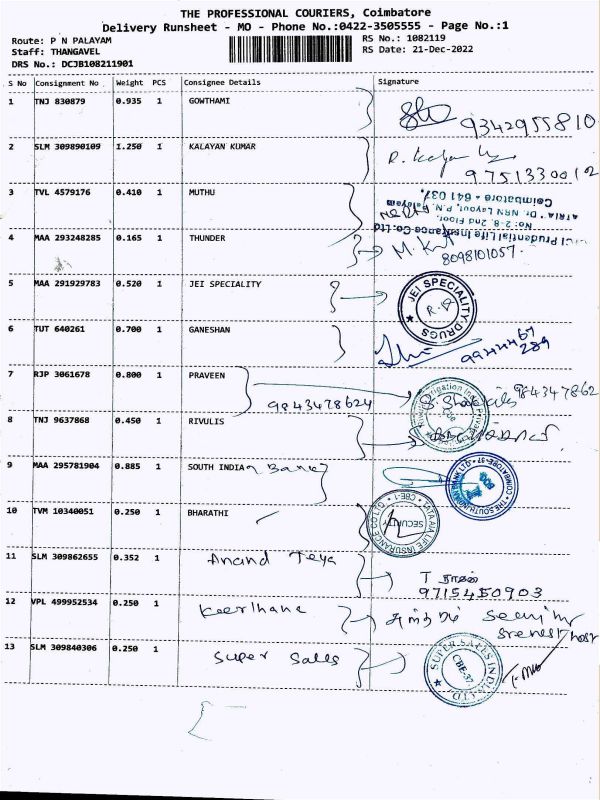 THE PROFESSIONAL COURIERS, Coimbatore
Delivery Runsheet - MO - Phone No.:0422-3505555 - Page No.:1
Route: P N PALAYAM
RS No.: 1082119
Staff: THANGAVEL
RS Date: 21-Dec-2022
DRS No.: DCJB108211901
S No Consignment No Weight PCS Consignee Details Signature
1 TNJ 830879 0.935 1 GOWTHAMI
9342955810
2 SLM 309890109 1.250 1 KALAYAN KUMAR
9751330012
3 TVL 4579176 0.410 1 MUTHU
Prudential Life Insurance Co. Ltd
No: 2-8, 2nd Floor,
"ATRIA" Dr. NRN Layout, P.N. Palayam
Coimbatore - 641 037.
4 MAA 293248285 0.165 1 THUNDER
8098101057
5 MAA 291929783 0.520 1 JEI SPECIALITY
JEI SPECIALITY DRUGS
6 TUT 640261 0.700 1 GANESHAN
9944467
289
7 RJP 3061678 0.800 1 PRAVEEN
9843478624
984347862
8 TNJ 9637868 0.450 1 RIVULIS
9 MAA 295781904 0.885 1 SOUTH INDIAn Bank
COIMBATORE-37
10 TVM 10340051 0.250 1 BHARATHI
TATA AIA LIFE INSURANCE CO LTD
CBE-1
SECURITY
11 SLM 309862655 0.352 1 Anand Teya
9715450903
12 VPL 499952534 0.250 1 Keerthana
13 SLM 309840306 0.250 1 Super Sales
SUPER SALES INDIA LTD
CBE-37